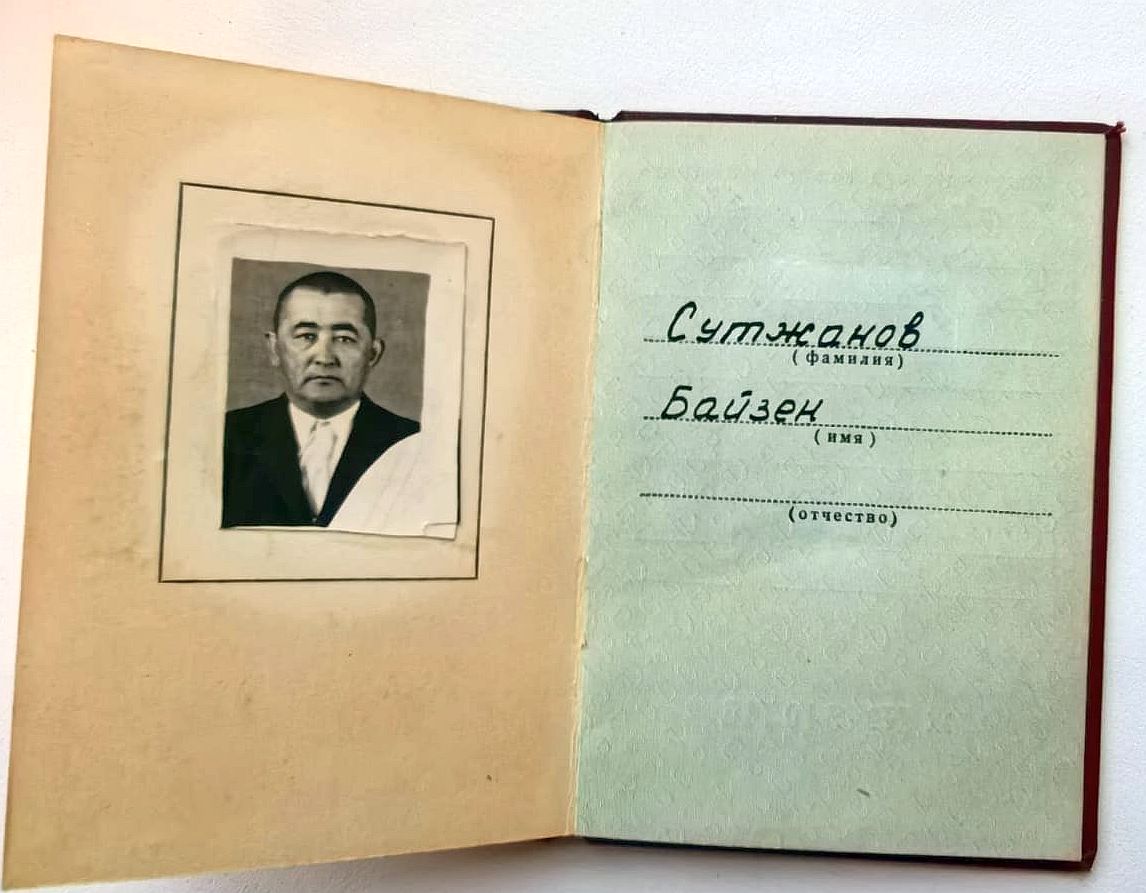 Сутжанов
(фамилия)
Байзен
(имя)
(отчество)